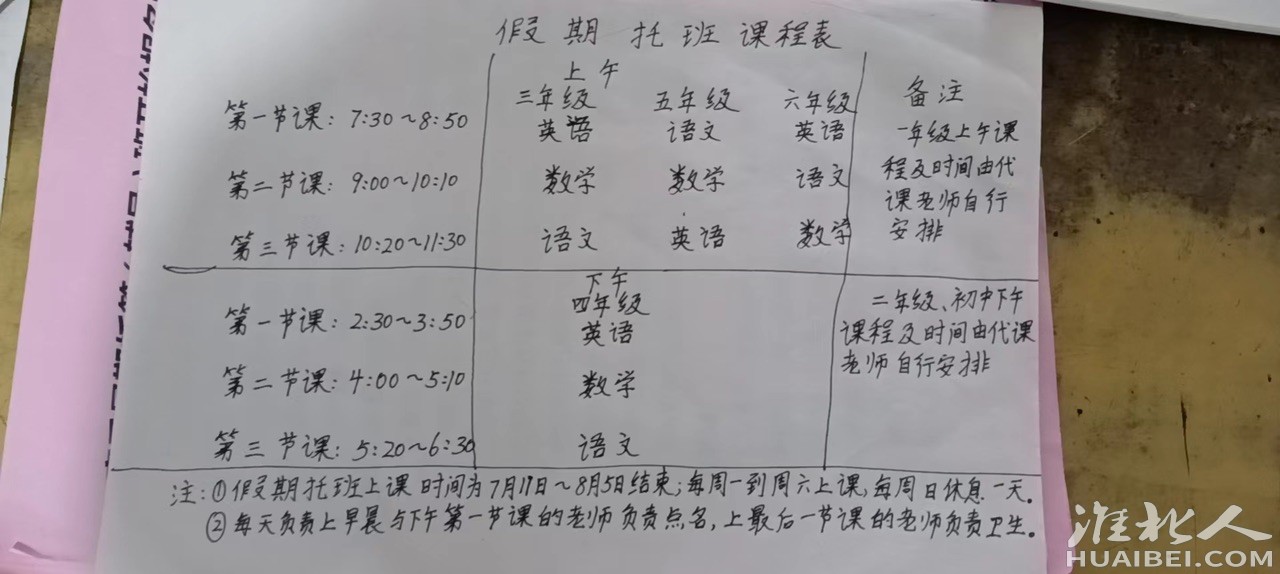 假期托班课程表
上午
三年级 五年级 六年级 备注
第一节课：7:30～8:50 英语 语文 英语
一年级上午课
程及时间由代
课老师自行
安排
第二节课：9:00～10:10 数学 数学 语文
第三节课：10:20～11:30 语文 英语 数学
下午
四年级
第一节课：2:30～3:50 英语
二年级、初中下午
课程及时间由代课
老师自行安排
第二节课：4:00～5:10 数学
第三节课：5:20～6:30 语文
注：①假期托班上课时间为7月11日～8月5日结束；每周一到周六上课，每周日休息一天。
②每天负责上早晨与下午第一节课的老师负责点名，上最后一节课的老师负责卫生。
淮北人
HUAIBEI.COM